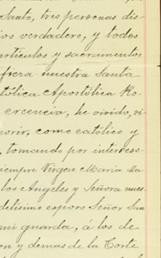 Santo, tres personas dis-
ios verdadero, y todos
artículos y sacramentos
fiera nuestra Santa
tólica Apostólica Ro-
creencia, he vivido, vi-
orir, como católico y
, tomando por interceso-
siempre Virgen María Sa
los Angeles y Señora nues
delísimo esposo Señor San
mi guarda, á los de
on y demas de la Corte